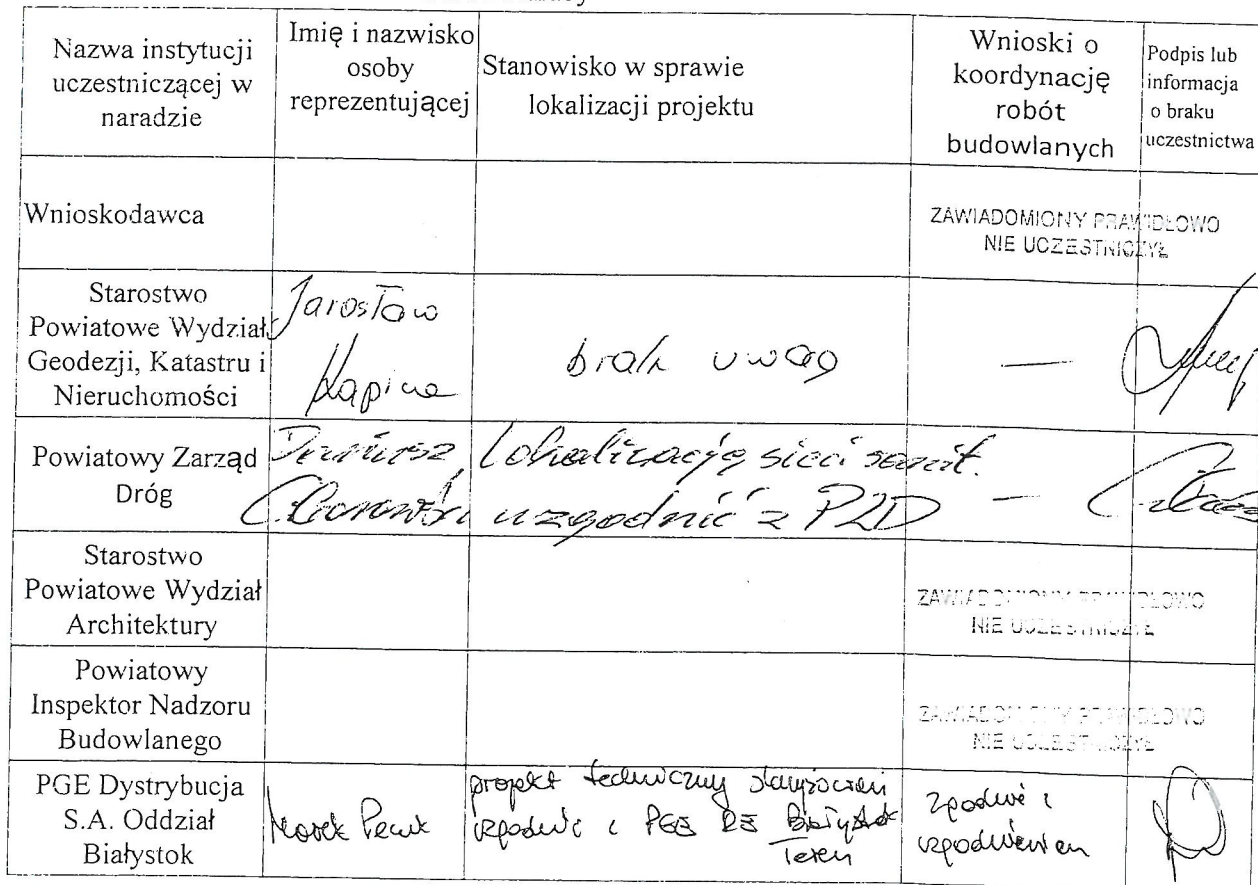 Nazwa instytucji
uczestniczącej w
naradzie
Imię i nazwisko
osoby
reprezentującej
Stanowisko w sprawie
lokalizacji projektu
Wnioski o
koordynację
robót
budowlanych
Podpis lub
informacja
o braku
uczestnictwa
Wnioskodawca
ZAWIADOMIONY PRAWIDŁOWO
NIE UCZESTNICZYŁ
Starostwo
Powiatowe Wydział
Geodezji, Katastru i
Nieruchomości
Jarosław
brak uwag
—
Powiatowy Zarząd
Dróg
Dariusz
Lokalizację sieci sanit.
uzgodnić z PZD
—
Starostwo
Powiatowe Wydział
Architektury
ZAWIADOMIONY PRAWIDŁOWO
NIE UCZESTNICZYŁ
Powiatowy
Inspektor Nadzoru
Budowlanego
ZAWIADOMIONY PRAWIDŁOWO
NIE UCZESTNICZYŁ
PGE Dystrybucja
S.A. Oddział
Białystok
Marek
projekt techniczny
uzgodnić z PGE RE Białystok
Teren
Zgodnie z
uzgodnieniem